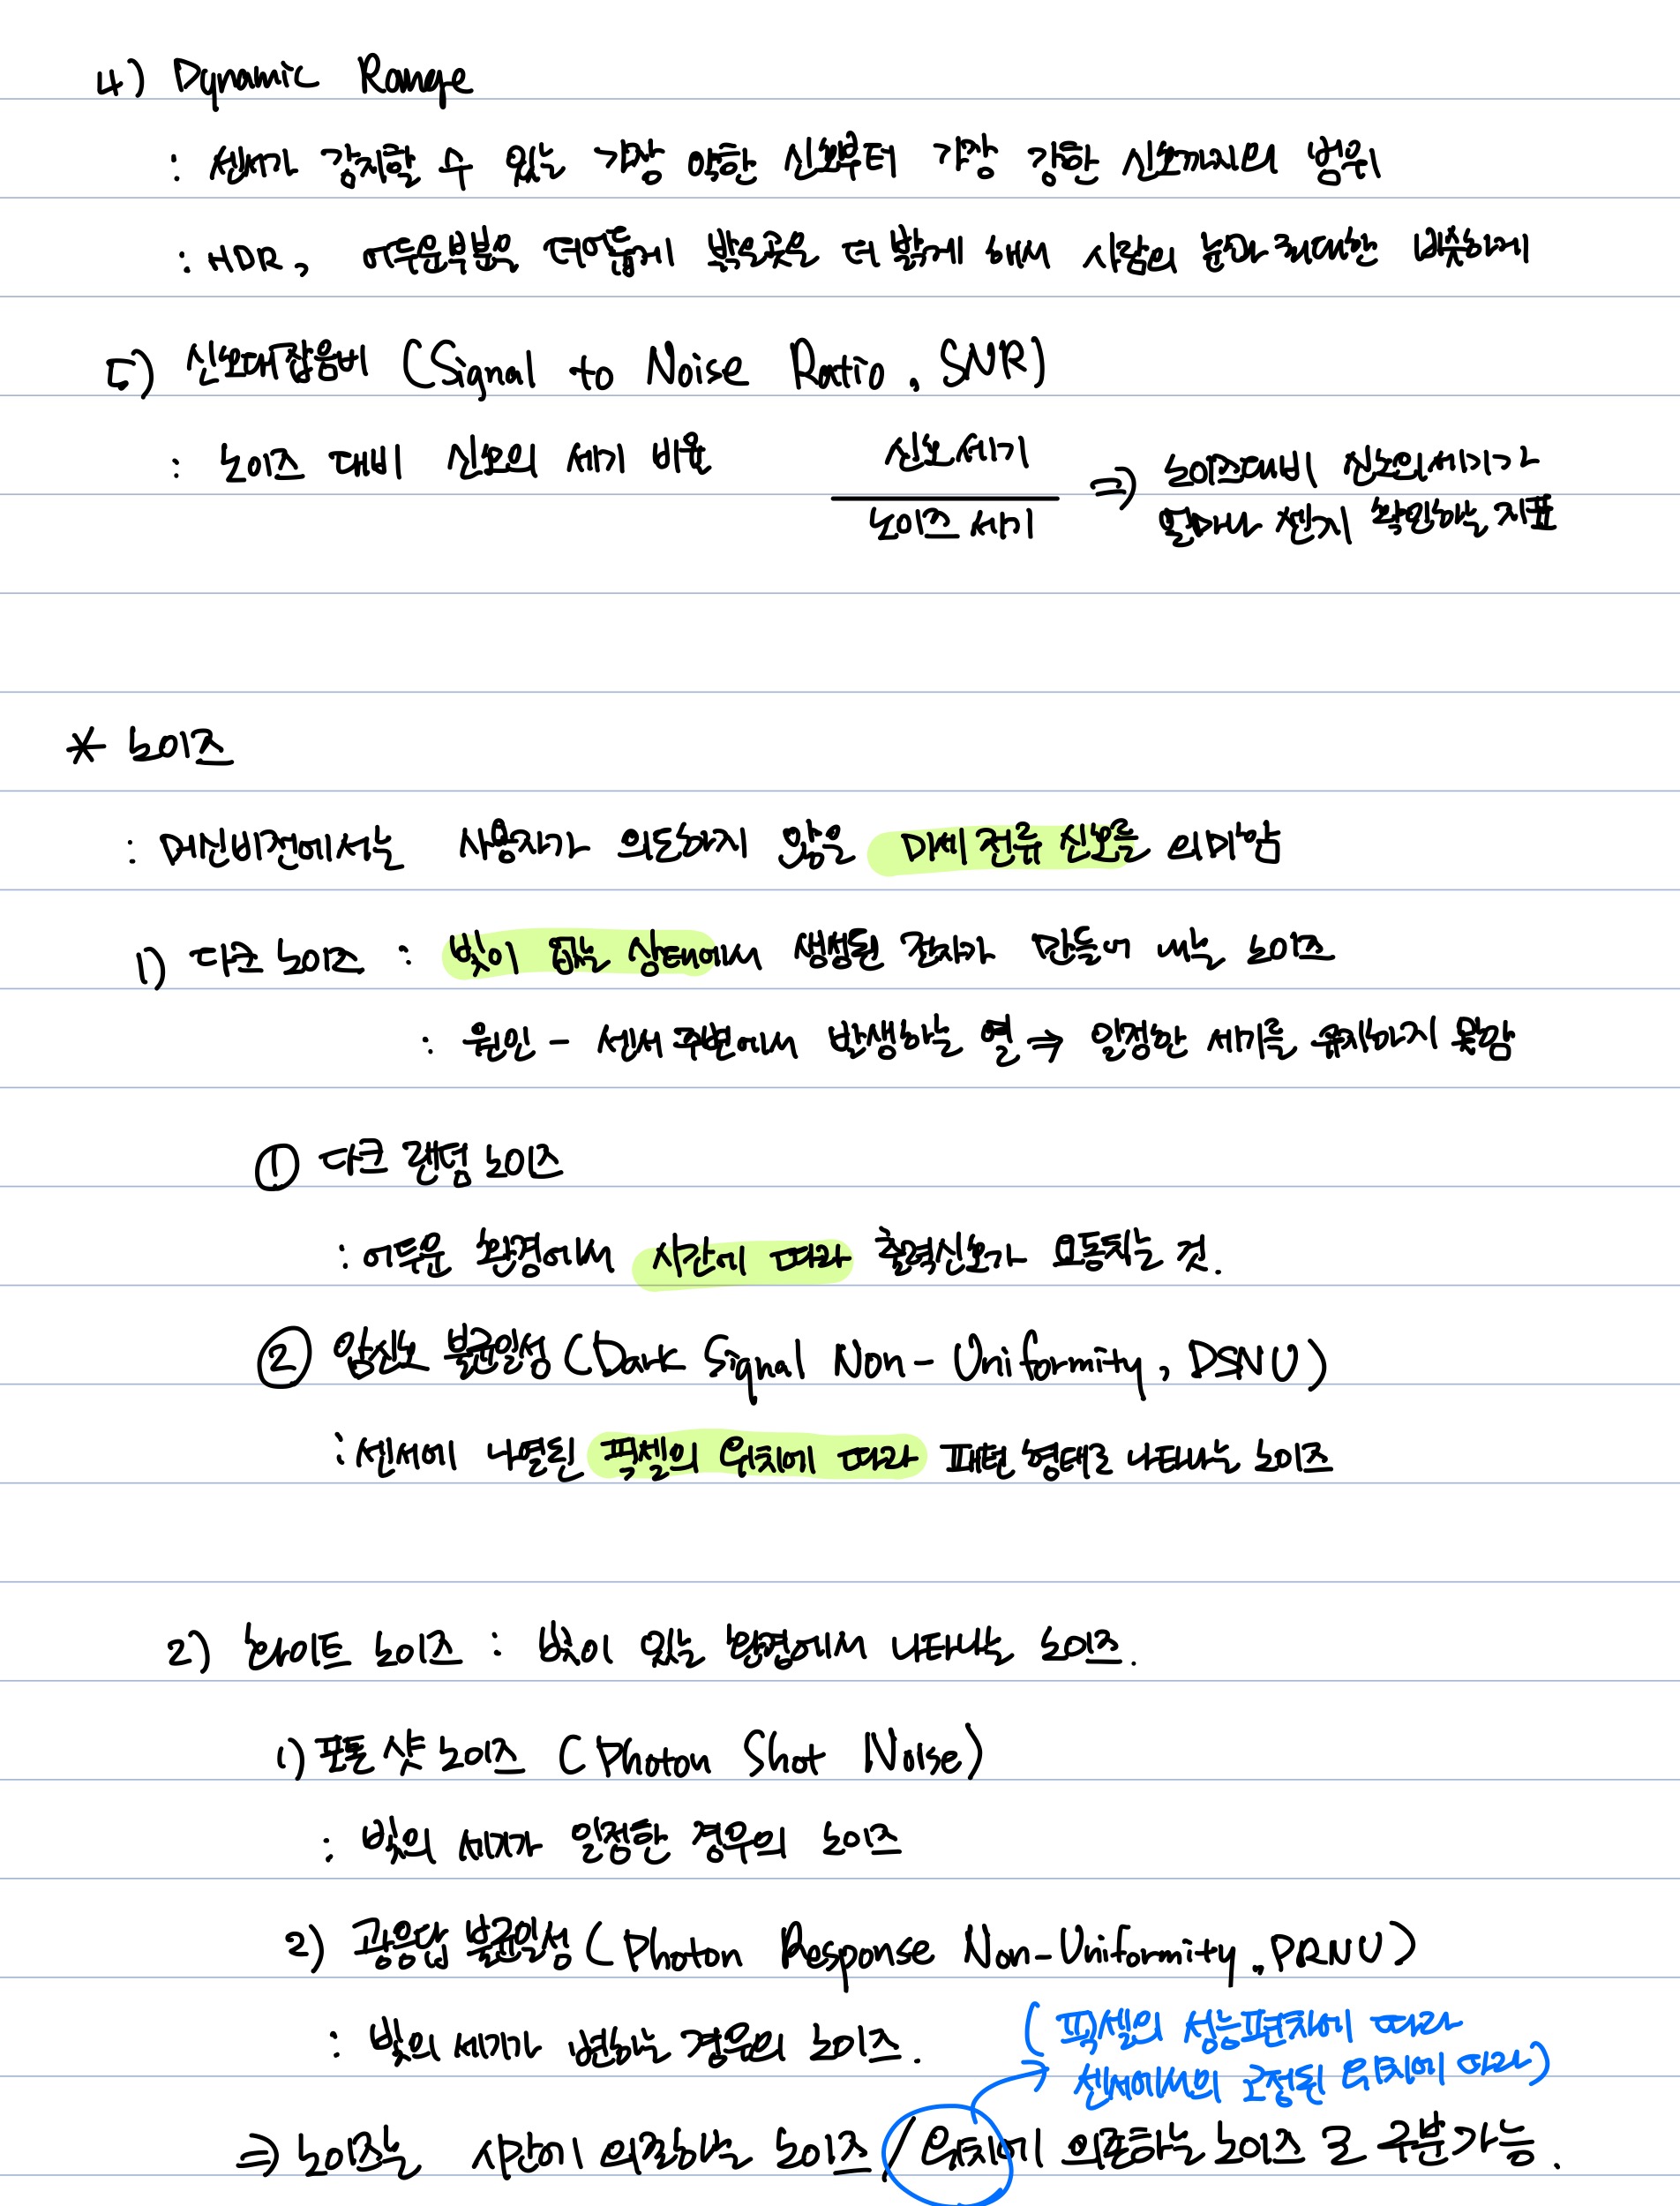 4) Dynamic Range
: 센서가 감지할 수 있는 가장 약한 신호부터 가장 강한 신호까지의 범위
: HDR, 어두운부분은 더어둡게 밝은곳은 더 밝게 해서 사람의 눈과 최대한 비슷하게
5) 신호대잡음비 (Signal to Noise Ratio, SNR)
: 노이즈 대비 신호의 세기 비율
신호세기
노이즈 세기
⇒ 노이즈대비 신호의세기가
얼마나 센지 확인하는 지표
* 노이즈
: 머신비전에서는 사용자가 의도하지 않은 미세 전류 신호를 의미함
1) 다크 노이즈 : 빛이 없는 상태에서 생성된 전자가 만들어 내는 노이즈
: 원인 - 센서 주변에서 발생하는 열 ⇒ 일정한 세기를 유지하지 못함
① 다크 랜덤 노이즈
: 어두운 환경에서 시간에 따라 출력신호가 요동치는 것.
② 암신호 불균일성 (Dark Signal Non-Uniformity, DSNU)
: 센서에 나열된 픽셀의 위치에 따라 패턴 형태로 나타나는 노이즈
2) 화이트 노이즈 : 빛이 있는 환경에서 나타나는 노이즈.
1) 포톤 샷 노이즈 (Photon Shot Noise)
: 빛의 세기가 일정한 경우의 노이즈
2) 광응답 불균일성 (Photon Response Non-Uniformity, PRNU)
: 빛의 세기가 변하는 경우의 노이즈.
(픽셀의 성능편차에 따라
센서에서의 고정된 위치에 따라)
⇒ 노이즈는 시간에 의존하는 노이즈 / 위치에 의존하는 노이즈 로 구분가능.